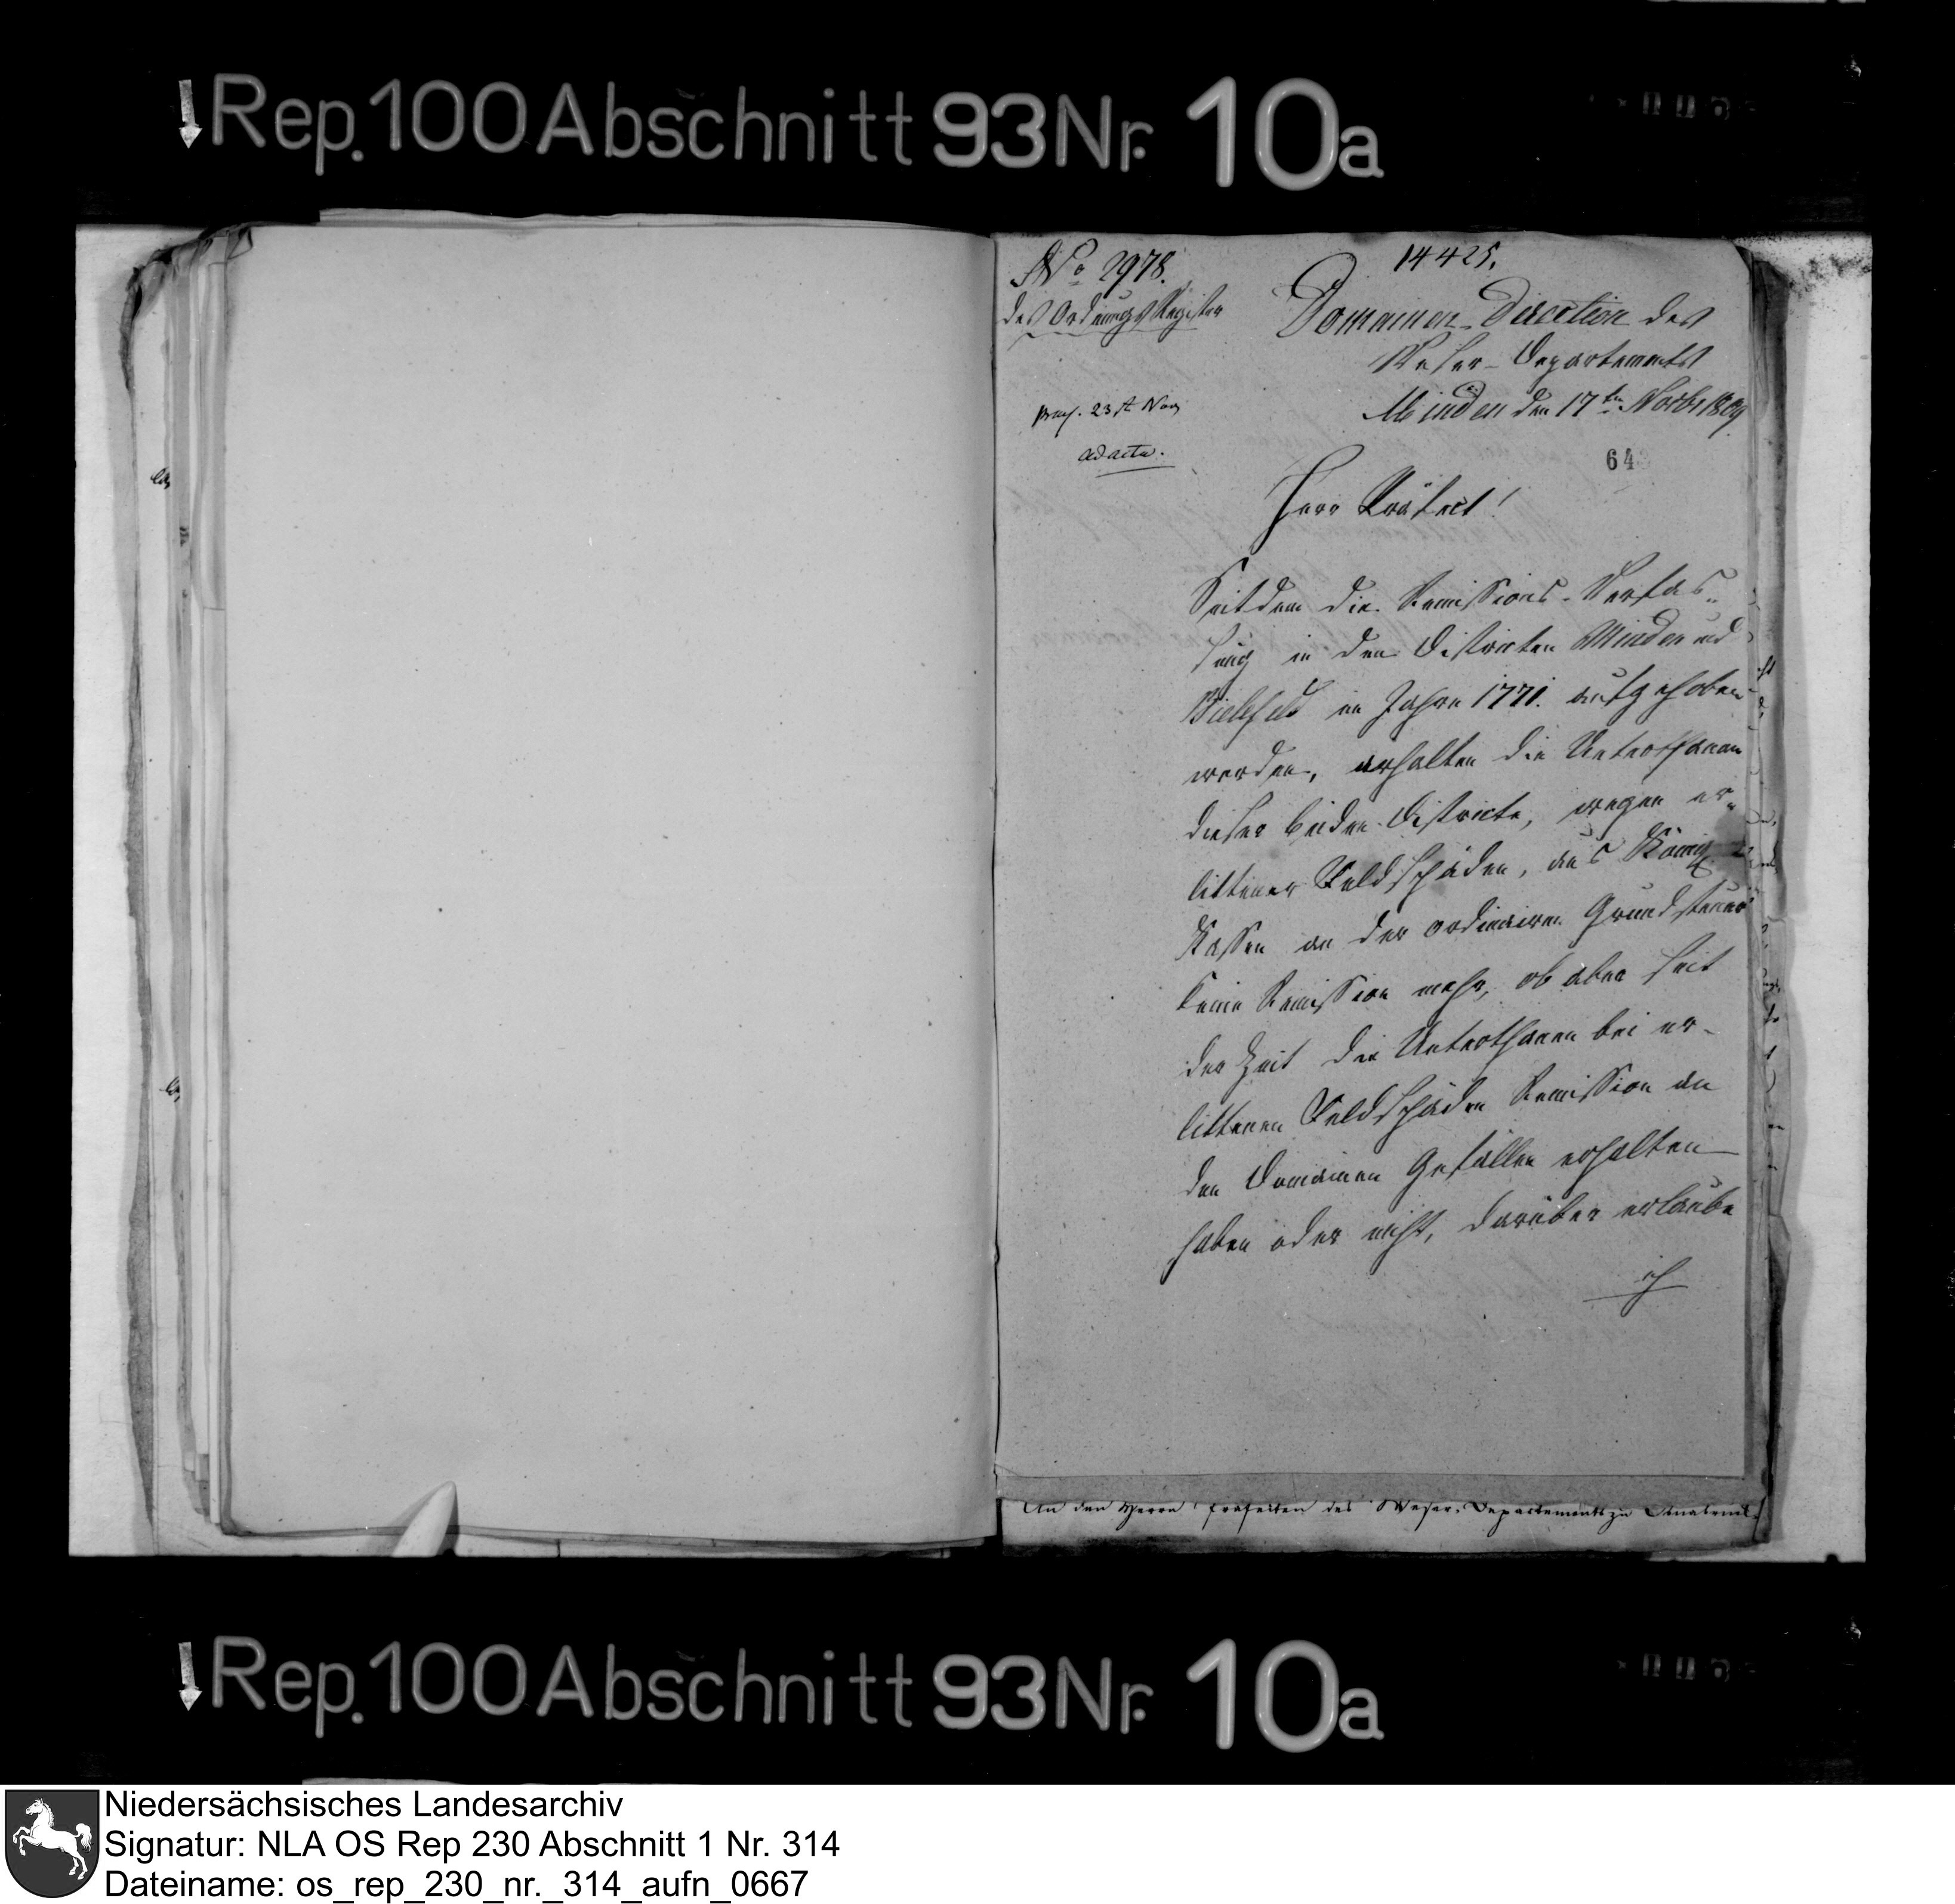 Rep. 100 Abschnitt 93 Nr. 10a
No 2978.
des Ordnungs Register
praes. 23st Nov
ad acta.
14425.
Domainen-Direction des
Weser-Departements
Minden den 17ten Novbr 1809
643
Herr Präfect!
Seitdem die Remissions-Verfas-
sung in den Districten Minden und
Bielefeld im Jahre 1771. aufgehoben
worden, erhalten die Unterthanen
dieser beiden Districte, wegen er-
littener Feldschäden, aus Königl.
Kassen an der ordinairen Grundsteuer
keine Remission mehr, ob aber seit
der Zeit die Unterthanen bei er-
littenen Feldschäden Remission an
den Domainen Gefällen erhalten
haben oder nicht, darüber erlaube
ich
An den Herrn Präfecten des Weser-Departements zu Osnabrück.
Rep. 100 Abschnitt 93 Nr. 10a
Niedersächsisches Landesarchiv
Signatur: NLA OS Rep 230 Abschnitt 1 Nr. 314
Dateiname: os_rep_230_nr._314_aufn_0667